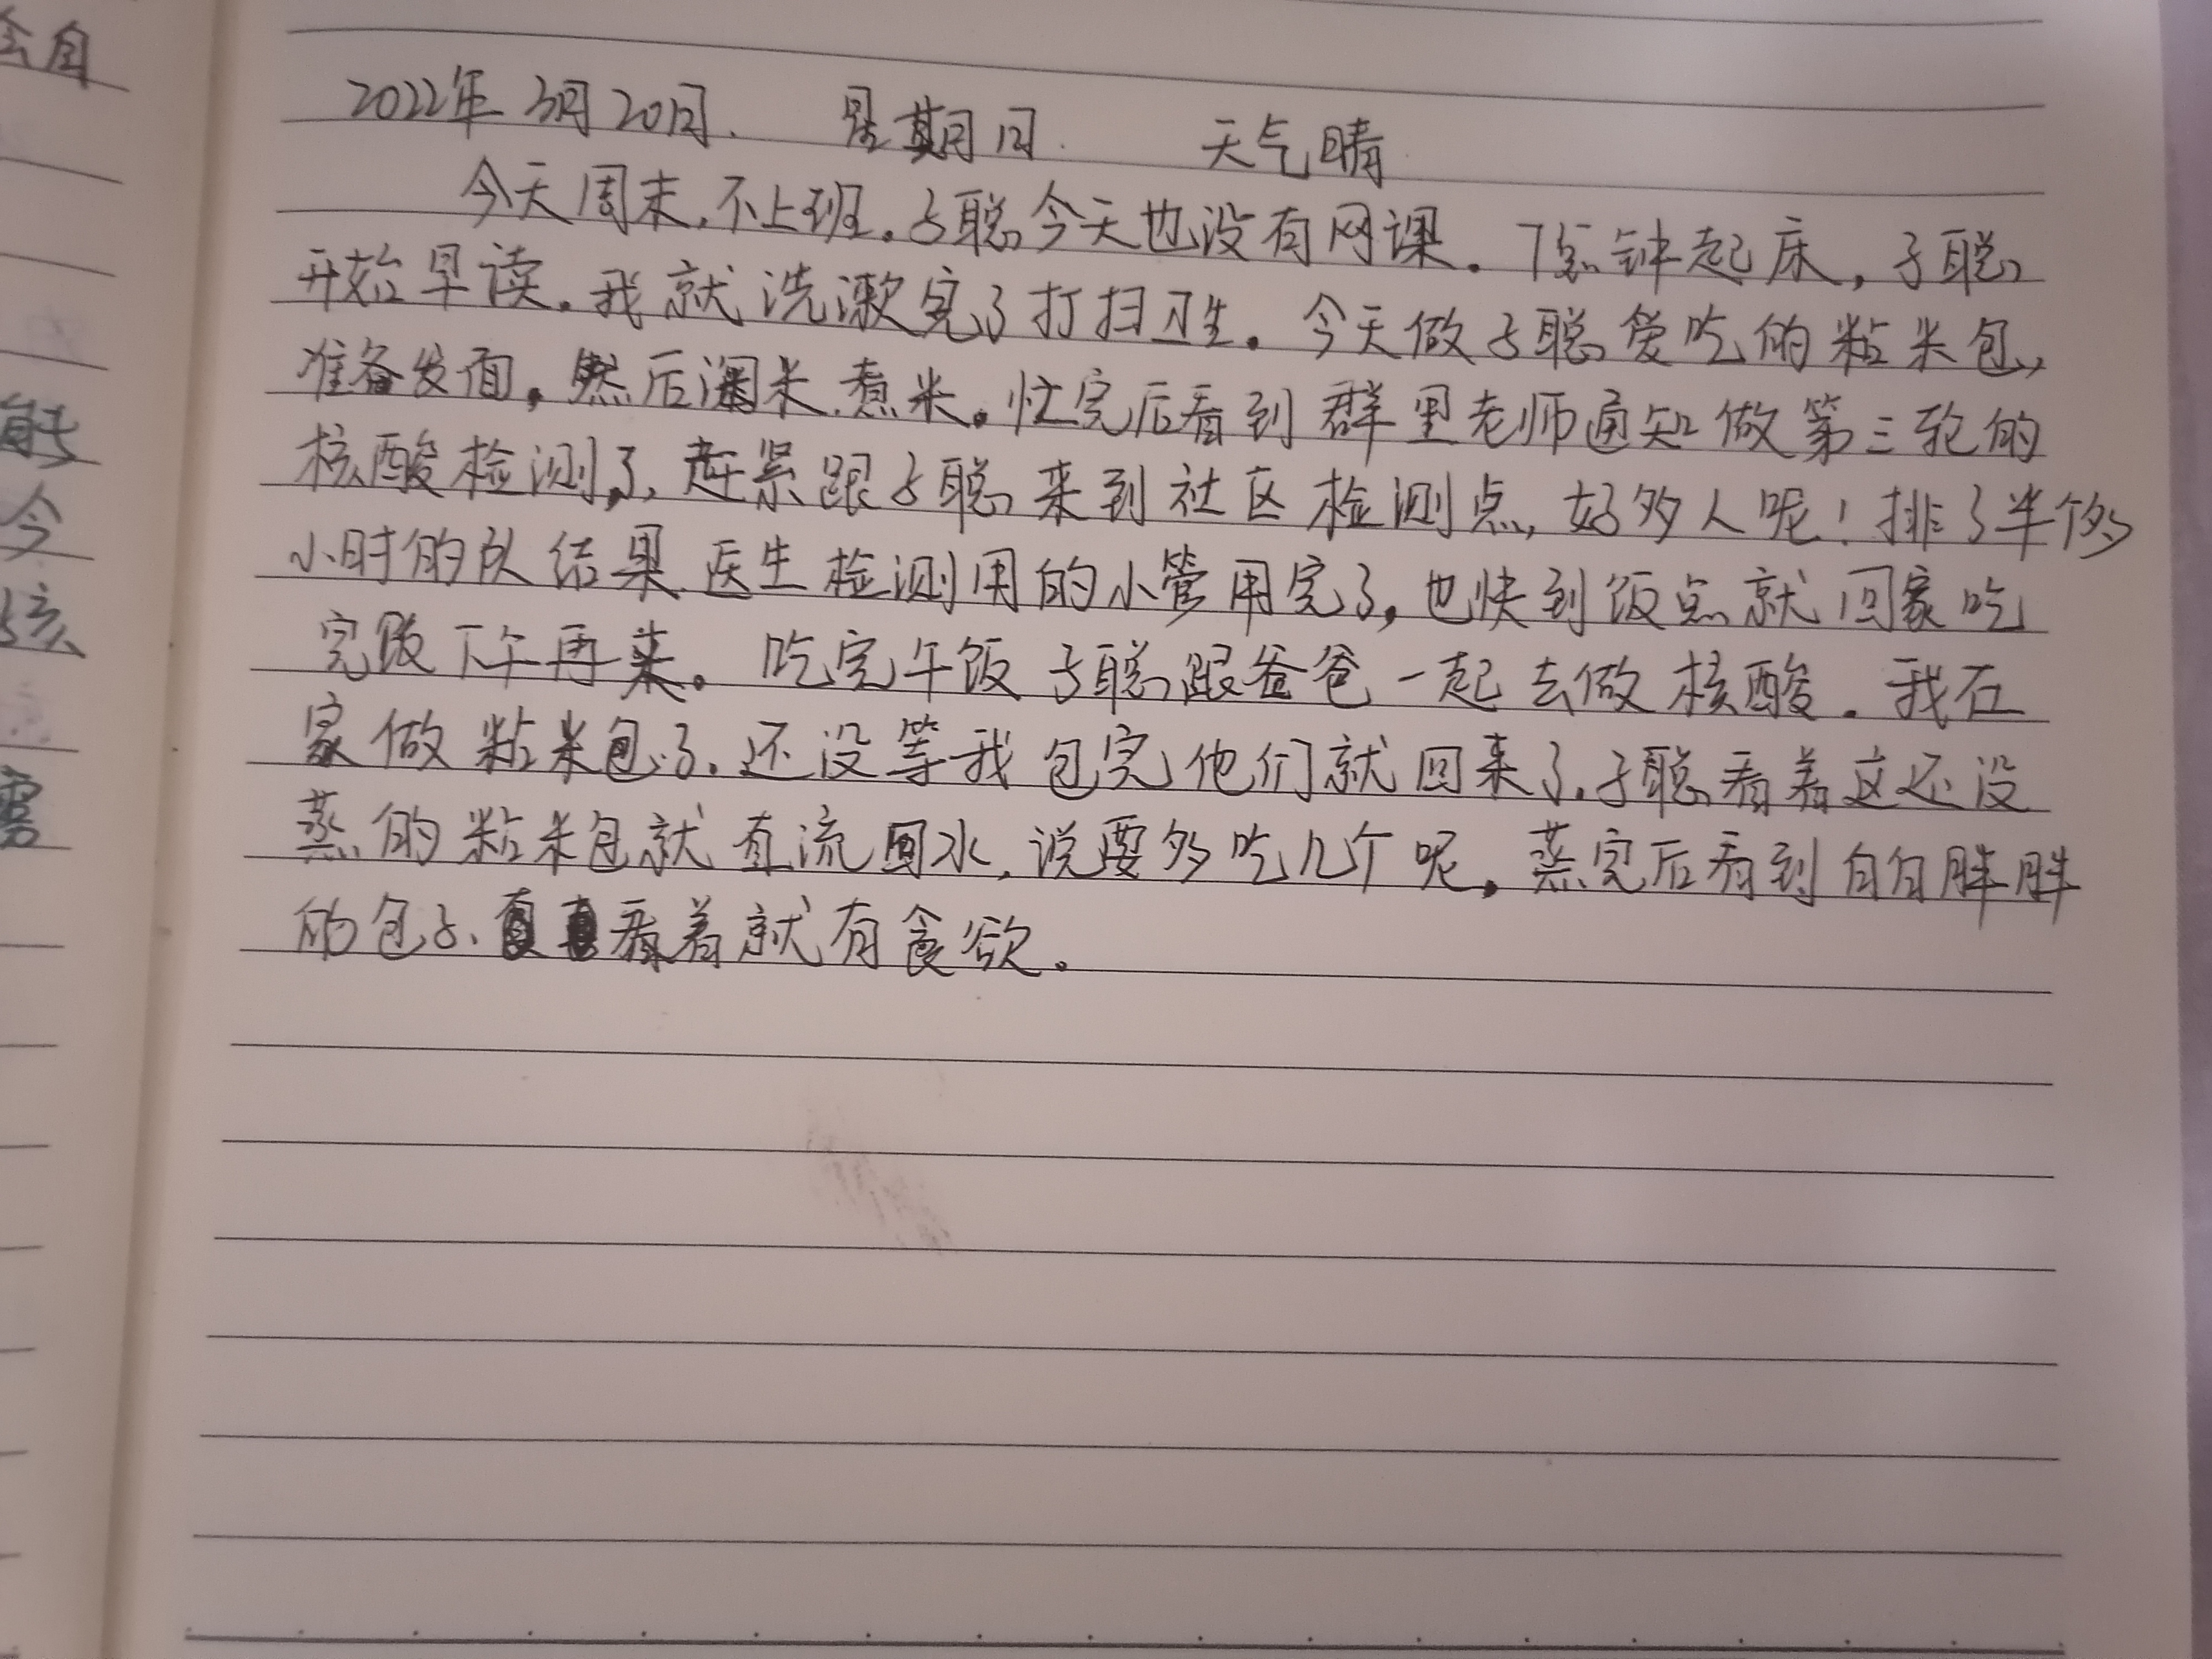 2022年3月20日. 星期日. 天气晴
今天周末,不上班。子聪今天也没有网课。7点钟起床,子聪
开始早读。我就洗漱完了打扫卫生。今天做子聪爱吃的粘米包,
准备发面。然后米.煮米。忙完后看到群里老师通知做第三轮的
核酸检测了,赶紧跟子聪来到社区检测点,好多人呢!排了半个多
小时的队结果.医生检测用的小管用完了,也快到饭点就回家吃
完饭下午再来。吃完午饭子聪跟爸爸一起去做核酸。我在
家做粘米包了.还没等我包完他们就回来了.子聪看着这还没
蒸的粘米包就直流口水,说要多吃几个呢。蒸完后看到白白胖胖
的包子、看着就有食欲。
会自
能
今
该
雾